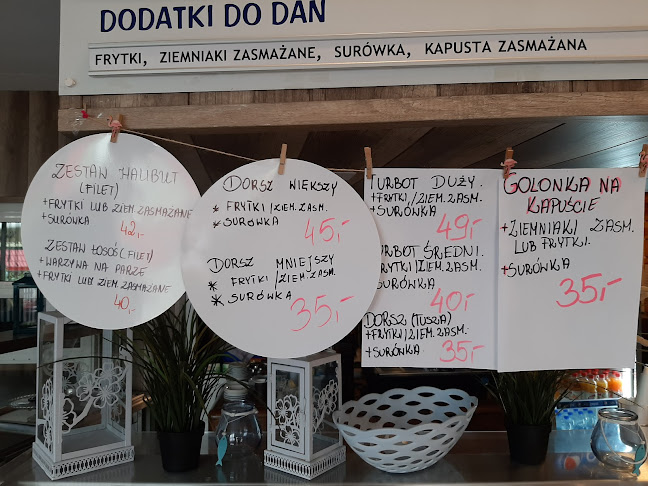 DODATKI DO DAŃ
FRYTKI, ZIEMNIAKI ZASMAŻANE, SURÓWKA, KAPUSTA ZASMAŻANA
ZESTAW HALIBUT
(FILET)
+FRYTKI LUB ZIEM ZASMAŻANE
+SURÓWKA
42,-
ZESTAW ŁOSOŚ (FILET)
+WARZYWA NA PARZE
+FRYTKI LUB ZIEM ZASMAŻANE
40,-
DORSZ WIĘKSZY
* FRYTKI /ZIEM. ZASM.
* SURÓWKA
45,-
DORSZ MNIEJSZY
* FRYTKI /ZIEM. ZASM.
* SURÓWKA
35,-
TURBOT DUŻY.
+FRYTKI/ZIEM. ZASM.
+SURÓWKA
49,-
TURBOT ŚREDNI.
FRYTKI/ZIEM. ZASM.
SURÓWKA
40,-
DORSZ (TUSZA)
+FRYTKI/ZIEM. ZASM.
+SURÓWKA
35,-
GOLONKA NA
KAPUŚCIE
+ZIEMNIAKI ZASM.
LUB FRYTKI.
+SURÓWKA
35,-